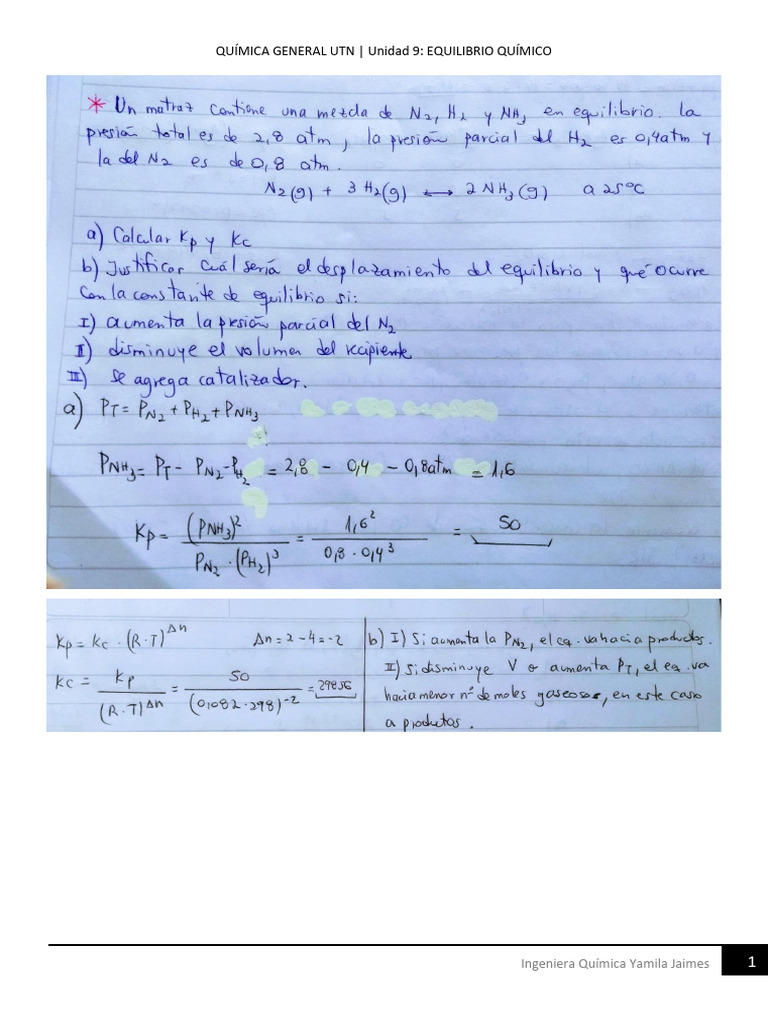 QUÍMICA GENERAL UTN | Unidad 9: EQUILIBRIO QUÍMICO
* Un matraz contiene una mezcla de N₂, H₂ y NH₃ en equilibrio. La
presión total es de 2,8 atm, la presión parcial del H₂ es 0,4atm y
la del N₂ es de 0,8 atm.
N₂(g) + 3 H₂(g) ⟷ 2 NH₃(g) a 25°C
a) Calcular Kp y Kc
b) Justificar cuál sería el desplazamiento del equilibrio y qué ocurre
con la constante de equilibrio si:
I) aumenta la presión parcial del N₂
II) disminuye el volumen del recipiente
III) se agrega catalizador.
a) PT = PN₂ + PH₂ + PNH₃
PNH₃ = PT - PN₂ - PH₂ = 2,8 - 0,4 - 0,8atm = 1,6
Kp = (PNH₃)² / PN₂ · (PH₂)³ = 1,6² / 0,8 · 0,4³ = 50
Kp = Kc · (R·T)^Δn Δn = 2 - 4 = -2
Kc = Kp / (R·T)^Δn = 50 / (0,082 · 298)⁻² = 29856
b) I) Si aumenta la PN₂, el eq. va hacia productos.
II) Si disminuye V o aumenta PT, el eq. va
hacia menor nº de moles gaseosos, en este caso
a productos.
Ingeniera Química Yamila Jaimes
1